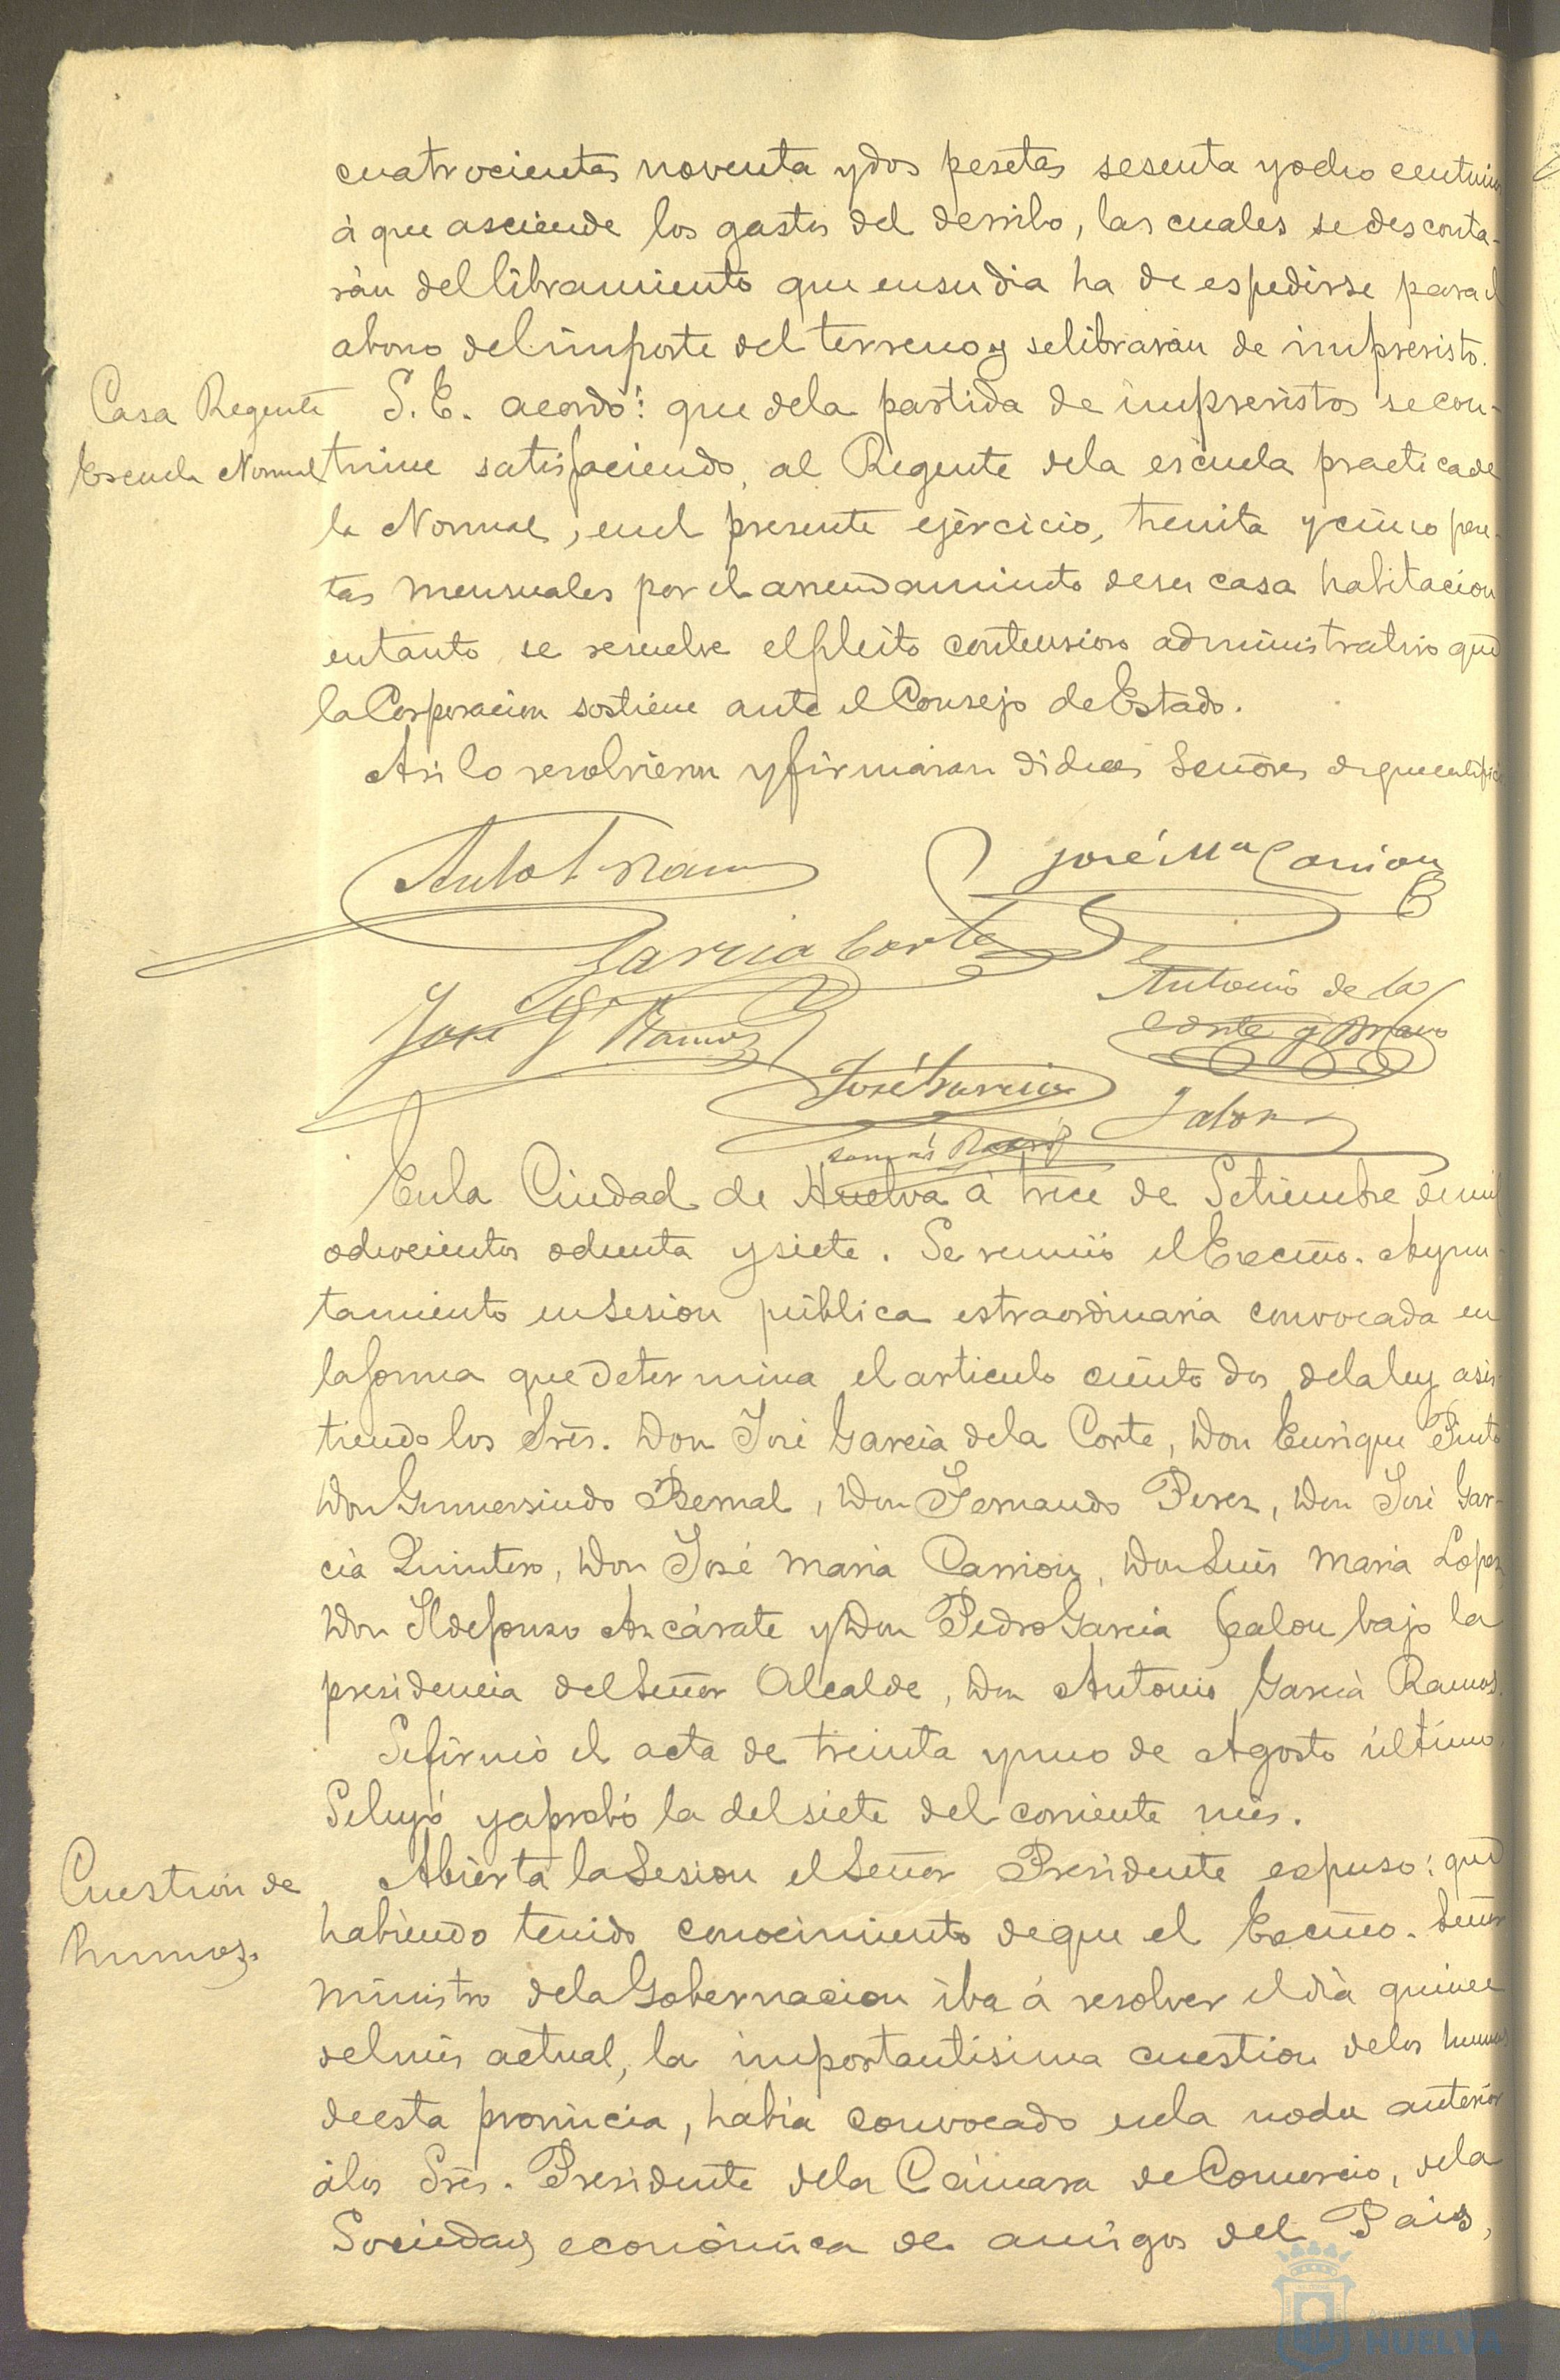 cuatrocientas noventa y dos pesetas sesenta y ocho centimos
á que asciende los gastos del derribo, las cuales se desconta-
rán del libramiento que en su dia ha de espedirse para el
abono del importe del terreno y se librarán de imprevisto.
Casa Regente
Escuela Normal
S. E. acordó: que de la partida de imprevistos se con-
tinue satisfaciendo al Regente de la escuela practica de
la Normal, en el presente ejercicio, treinta y cinco pese-
tas mensuales por el arrendamiento de su casa habitacion
en tanto se resuelve el pleito contensioso administrativo que
la Corporacion sostiene ante el Consejo de Estado.
Asi lo resolvieron y firmaran dichos Señores de que certifico
Antº G Ramos
José Mª Carrion
Garcia Corte
Antonio de la
Corte y Bravo
José G Ramos
José Garcia
Jalon
Tomás
En la Ciudad de Huelva á trece de Setiembre de mil
ochocientos ochenta y siete. Se reunió el Excmo. Ayun-
tamiento en Sesion pública estraordinaria convocada en
la forma que determina el articulo ciento dos de la ley asis-
tiendo los Srés. Don José Garcia de la Corte, Don Enrique Pinto
Don Gumersindo Bernal, Don Fernando Perez, Don José Gar-
cia Quintero, Don José Maria Carrion, Don Luis Maria Lopez,
Don Ildefonso Azcárate y Don Pedro Garcia Jalon bajo la
presidencia del Señor Alcalde, Don Antonio Garcia Ramos.
Se firmó el acta de treinta y uno de Agosto último.
Se leyó y aprobó la del siete del corriente mes.
Cuestion de
humos.
Abierta la Sesion el Señor Presidente espuso: que
habiendo tenido conocimiento de que el Excmo. Señor
Ministro de la Gobernacion iba á resolver el dia quince
del mes actual, la importantisima cuestion de los humos
de esta provincia, habia convocado en la noche anterior
á los Srés. Presidente de la Cámara de Comercio, de la
Sociedad económica de amigos del Pais,
HUELVA